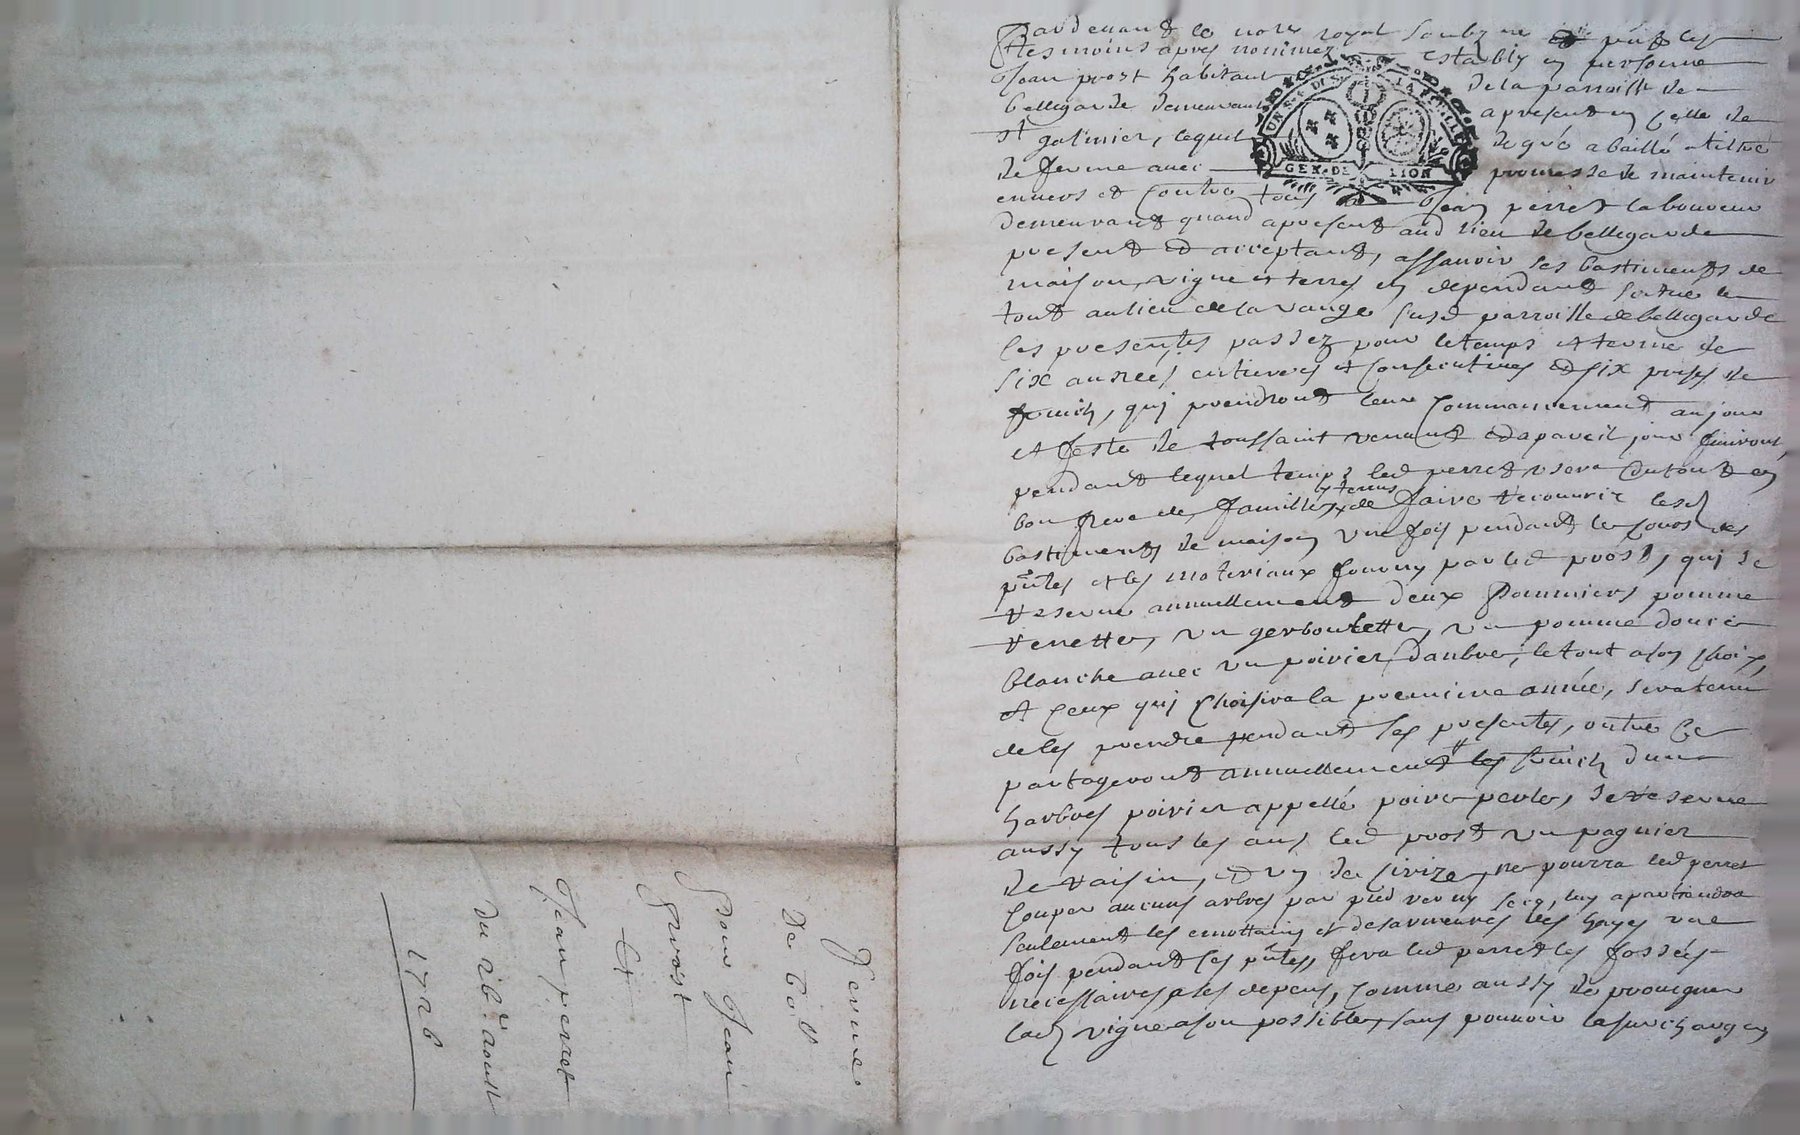 Pardevant le nore royal soubzne et pnts les
tesmoins apres nommez establÿ en personne
Jean prost habitant de la parroisse de
bellegarde demeurant apresent en celle de
st galmier, lequel de gré a baillé a tiltre
de ferme avec promesse de maintenir
envers et contre tous a Jean perret laboureur
demeurant quand apresent aud lieu de bellegarde
present et acceptant, assavoir ses bastiments de
maison, vigne et terres en dependant scitué le
tout au lieu de la vange susd parroisse de bellegarde
les presentes passez pour le temps et terme de
six années entieres et consecutives et six prises de
fruich, qui prendront leur commancement au jour
et feste de toussaint venant et a pareil jour finiront,
pendant lequel temps led perret usera du tout en
bon pere de famille, y tenus de faire recouvrir lesd
bastiments de maison une fois pendant le cours des
pntes et les materiaux fourny par led prost, qui se
reserve annuellement deux pommiers pomme
renette, un gerboulette, un pomme douce
blanche avec un poirier daubre, le tout a son choix,
et ceux qui choisira la premiere année, sera tenu
de les prendre pendant les presentes, outre ce
partageront annuellement les fruich dun
harbres poirier appellé poire perle, se reserve
aussy tous les ans led prost un pagnier
de raisin, et un de sirize, ne pourra led perret
couper aucuns arbres par pied verny secq, luy apartiendra
seulement les emottains et desarmeures des hayes une
fois pendant les pntes, fera led perret les fossés
necessaires a ses depens, comme aussy de prouigner
lad vigne a son possible, sans pouvoir la surcharger
GEN. DE LION
ferme
de 60 lt
pour Jean
Prost
Ct
Jean perret
du 26e aoust
1726